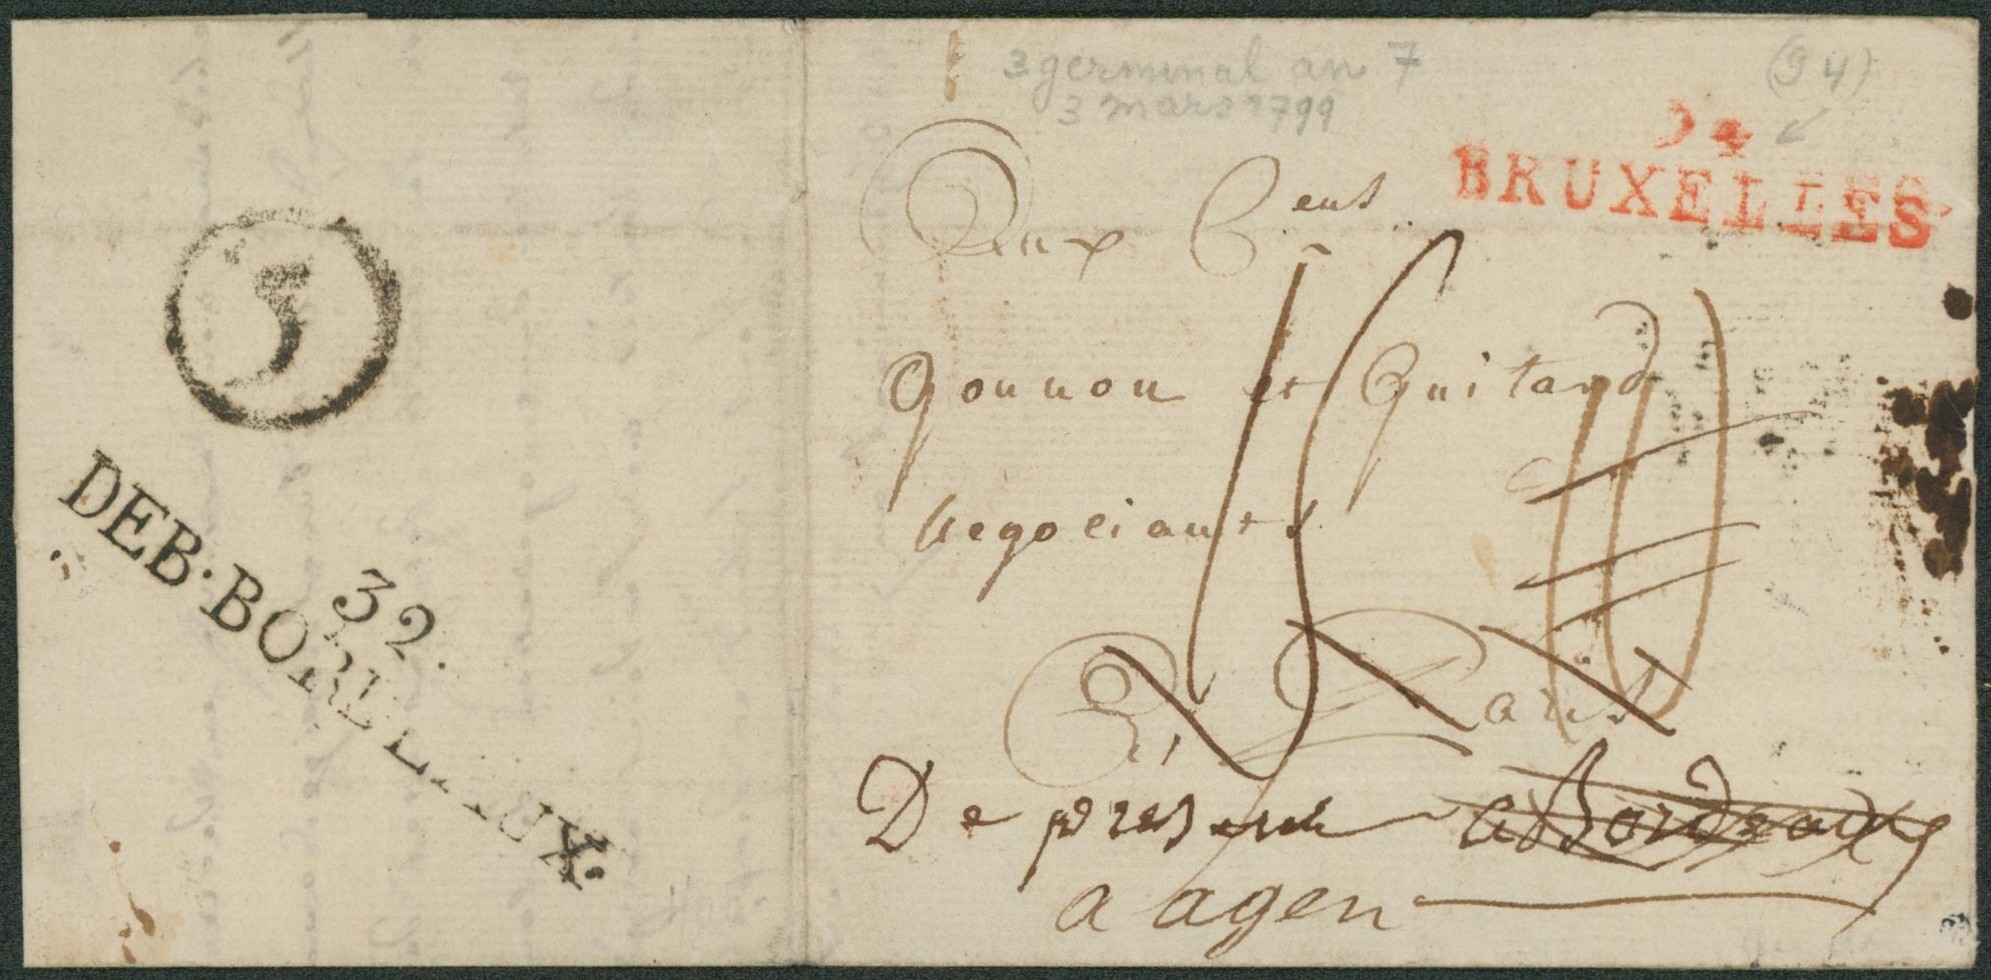 5
32.
DEB·BORDEAUX·
3 germinal an 7
3 mars 1799
(94)
94
BRUXELLES
Aux C ens
Gounon et Guitard
Negociants
15
A Paris
De present a Bordeaux
a agen